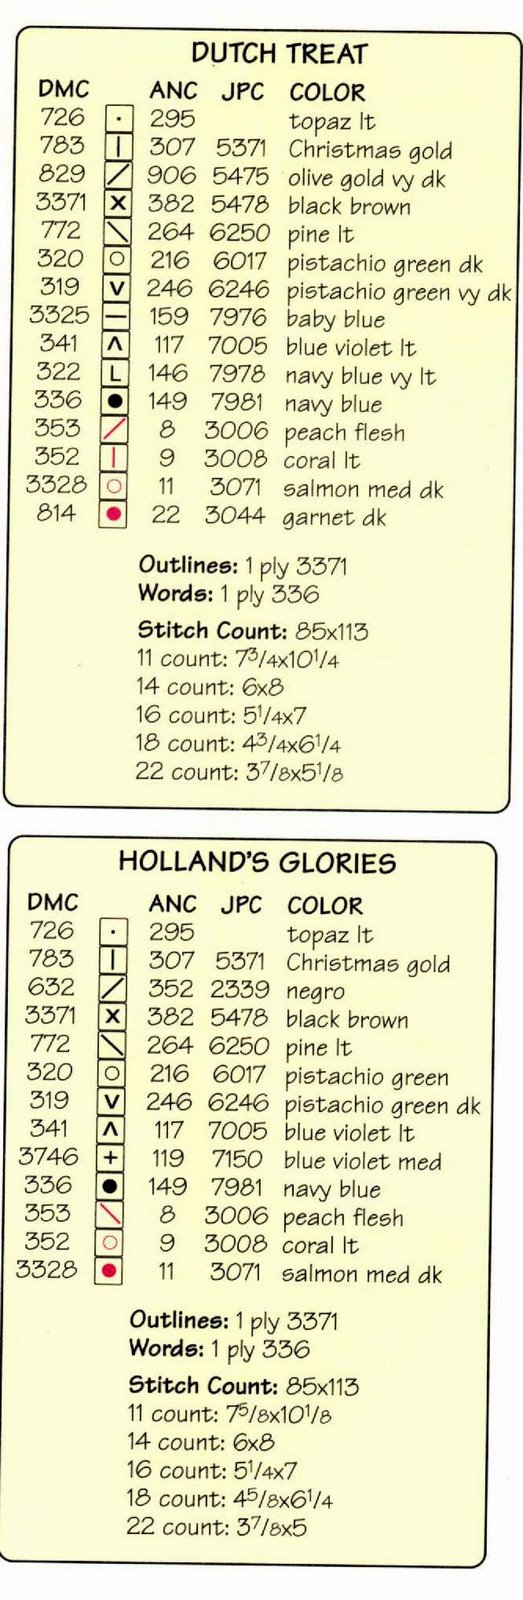 DUTCH TREAT
DMC ANC JPC COLOR
726 · 295 topaz lt
783 | 307 5371 Christmas gold
829 / 906 5475 olive gold vy dk
3371 x 382 5478 black brown
772 \ 264 6250 pine lt
320 ○ 216 6017 pistachio green dk
319 v 246 6246 pistachio green vy dk
3325 — 159 7976 baby blue
341 ʌ 117 7005 blue violet lt
322 L 146 7978 navy blue vy lt
336 ● 149 7981 navy blue
353 / 8 3006 peach flesh
352 | 9 3008 coral lt
3328 ○ 11 3071 salmon med dk
814 ● 22 3044 garnet dk
Outlines: 1 ply 3371
Words: 1 ply 336
Stitch Count: 85x113
11 count: 7 3/4x10 1/4
14 count: 6x8
16 count: 5 1/4x7
18 count: 4 3/4x6 1/4
22 count: 3 7/8x5 1/8
HOLLAND'S GLORIES
DMC ANC JPC COLOR
726 · 295 topaz lt
783 | 307 5371 Christmas gold
632 / 352 2339 negro
3371 x 382 5478 black brown
772 \ 264 6250 pine lt
320 ○ 216 6017 pistachio green
319 v 246 6246 pistachio green dk
341 ʌ 117 7005 blue violet lt
3746 + 119 7150 blue violet med
336 ● 149 7981 navy blue
353 \ 8 3006 peach flesh
352 ○ 9 3008 coral lt
3328 ● 11 3071 salmon med dk
Outlines: 1 ply 3371
Words: 1 ply 336
Stitch Count: 85x113
11 count: 7 5/8x10 1/8
14 count: 6x8
16 count: 5 1/4x7
18 count: 4 5/8x6 1/4
22 count: 3 7/8x5